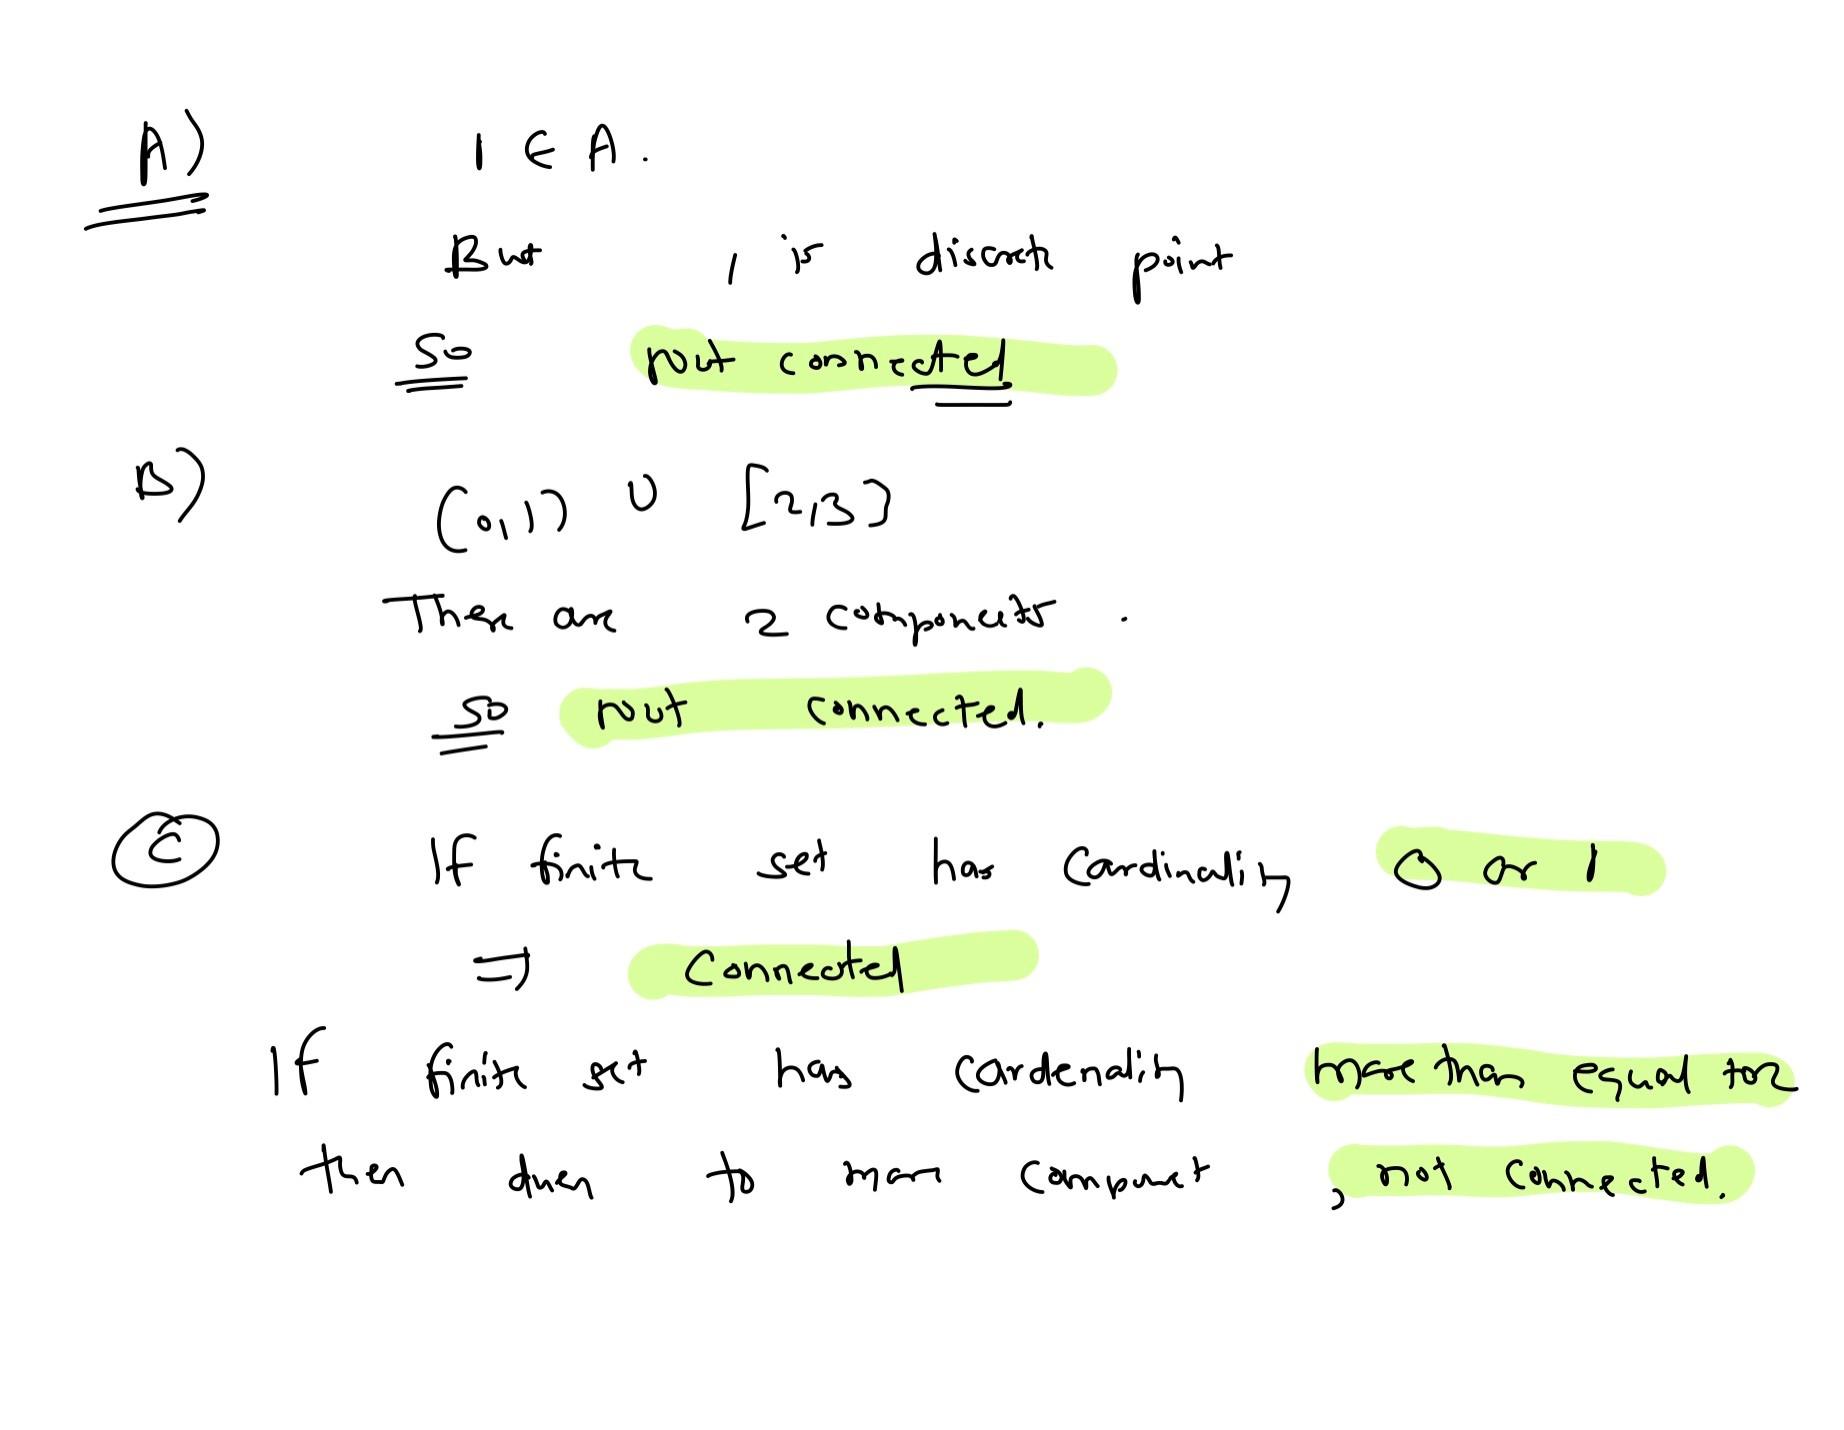 A) 1 ∈ A.
But 1 is discrete point
so not connected
B) (0,1) ∪ [2,3]
There are 2 components.
so not connected.
C If finite set has cardinality 0 or 1
⇒ Connected
If finite set has cardenality more than equal to 2
then to more component, not connected.